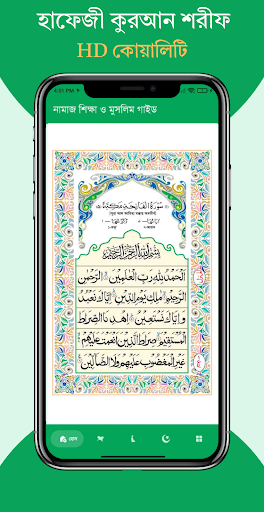 হাফেজী কুরআন শরীফ
HD কোয়ালিটি
নামাজ শিক্ষা ও মুসলিম গাইড
سورة الفاتحة مكية
بسم الله الرحمن الرحيم
الحمد لله رب العلمين الرحمن
الرحيم ملك يوم الدين اياك نعبد
واياك نستعين اهدنا الصراط
المستقيم صراط الذين انعمت عليهم
غير المغضوب عليهم ولا الضالين